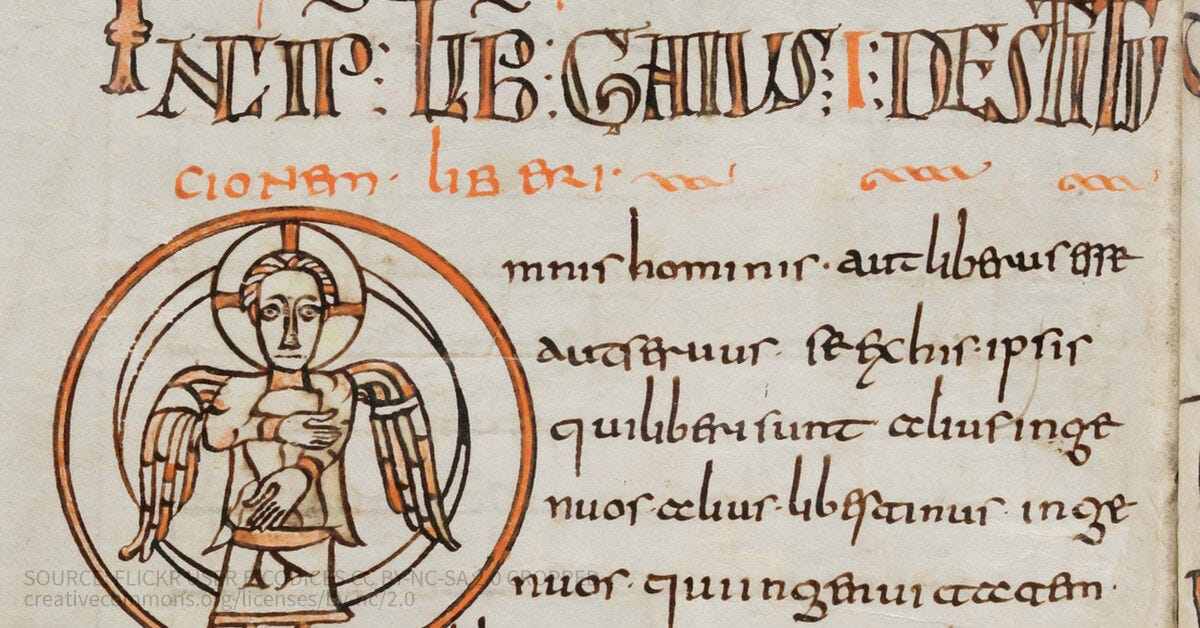 INCIP: LIB: GAIUS: I: DESTITU
CIONEM · LIBERI ·
mnis hominis · aut liber us esse
aut seruus · se ex his · ipsis
qui liberi sunt alius inge
nuos · alius · libertinus · inge
nuos · qui ingenui autem ·
SOURCE: FLICKR USER E-CODICES CC BY-NC-SA 2.0 CROPPED
creativecommons.org/licenses/by-nc/2.0